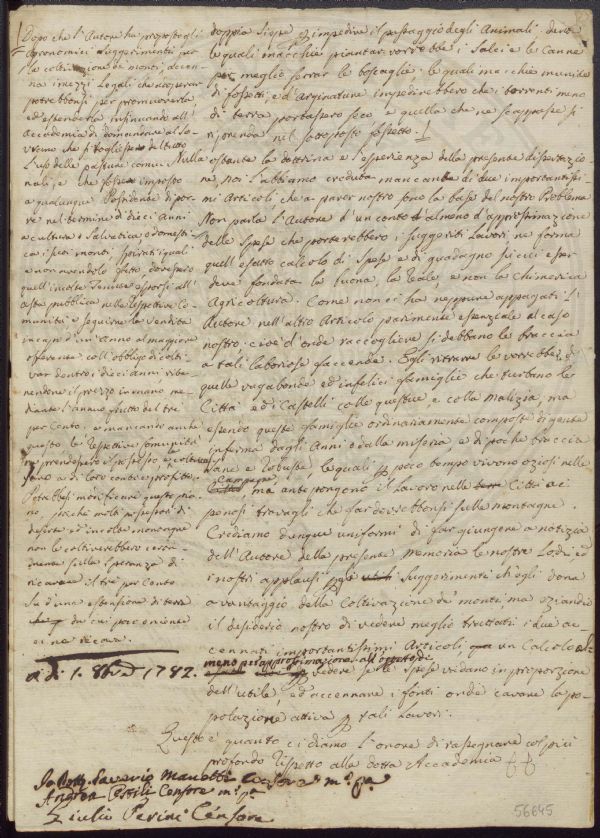 Dopo che l'Autore ha proposto gli
agronomici suggerimenti per
la coltivazione de monti, accen-
na i mezzi legali che adoperar
potrebbonsi per promuoverla
ed estenderla insinuando all'
Accademia di domandare al So-
vrano che si togliesse del tutto
l'uso delle pasture comu-
nali, e che fosse imposto
a qualunque Possidente di por-
re nel termine di dieci anni
a cultura o salvatica o domesti-
ca i suoi monti, spirati i quali
e non avendolo fatto, dovessero
quell'incolte Tenute esporsi all'
asta pubblica nelle rispettive Co-
munità e seguirne la vendita
in capo d'un'anno al maggiore
offerente coll'obbligo di colti-
var dentro i dieci anni, rite-
nendone il prezzo in mano me-
diante l'annuo frutto del tre
per Cento, e mancando anche
questo le respettive Comunità
ne prendessero il possesso e la coltivas-
sero a di loro conto e profitto.
Potrebbesi modificare questo pia-
no, perchè molti possessori di
deserte ed incolte montagne
non le coltiverebbero
sulla speranza di
ricavare il tre per Cento
su d'una estensione di terra
da cui poco o niente
ne ricava.
a dì 1. 8bre 1782.
doppia siepe per impedire il passaggio degli Animali, dentro
le quali macchie piantar vorrebbe i Salci e le Canne
per meglio serrar le boscaglie, le quali macchie munite
di fossetti e d'arginature impedirebbero che i torrenti meno
di terra portassero seco e quella che ne scappasse si
riprenda nel sottoposto fossetto.
Nulla ostante la dottrina e l'esperienza della presente dissertazio-
ne, noi l'abbiamo creduta mancante di due importantissi-
mi Articoli che a parer nostro sono la base del nostro Problema
Non parla l'Autore d'un conto almeno d'approssimazione
delle spese che porterebbero i suggeriti lavori, ne forma
quell'esatto calcolo di spese e di guadagno su cui esser
deve fondata la buona, la reale, e non la chimerica
Agricoltura. Come non ci ha neppure appagati l'
Autore nell'altro Articolo parimente essenziale al caso
nostro cioè d'onde raccogliere si debbano le braccia
a tali laboriose faccende. Egli ritrarre le vorrebbe da
quelle vagabonde ed infelici famiglie che turbano le
Città ed i Castelli colle questue e colla malizia, ma
essendo queste famiglie ordinariamente composte di gente
inferma dagli Anni o dalla miseria e di poche braccia
sane e robuste, le quali per poco tempo vivono oziosi nelle
campagne, ma antepongono il lavoro nelle Città ai
penosi travagli che far dovrebbonsi sulle montagne.
Crediamo dunque uniformi di far giungere a notizia
dell'Autore della presente Memoria le nostre Lodi ed
i nostri applausi per i suggerimenti ch'egli dona
a vantaggio della Coltivazione de' monti, ma eziandio
il desiderio nostro di vedere meglio trattati i due ac-
cennati importantissimi Articoli, con un Calcolo al-
meno per approssimazione all'oggetto di
vedere se le spese vadano in proporzione
dell'utile, ed accennare i fonti onde cavare la po-
polazione attiva per tali lavori.
Questo è quanto ci diamo l'onore di rassegnare col più
profondo rispetto alla dotta Accademia
Saverio Manetti Censore m.o p.a
Andrea Censore m.o p.a
Giulio Perini Censore
56645